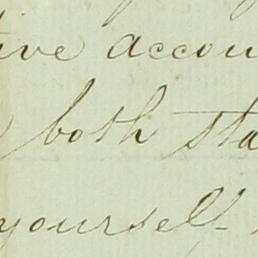 tive accou
both sta
yourself